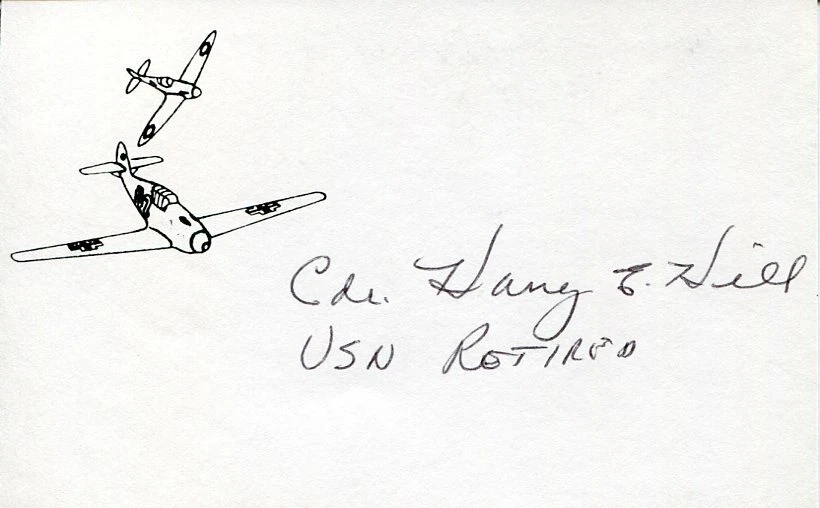 Cdr. Harry E. Hill
USN RETIRED